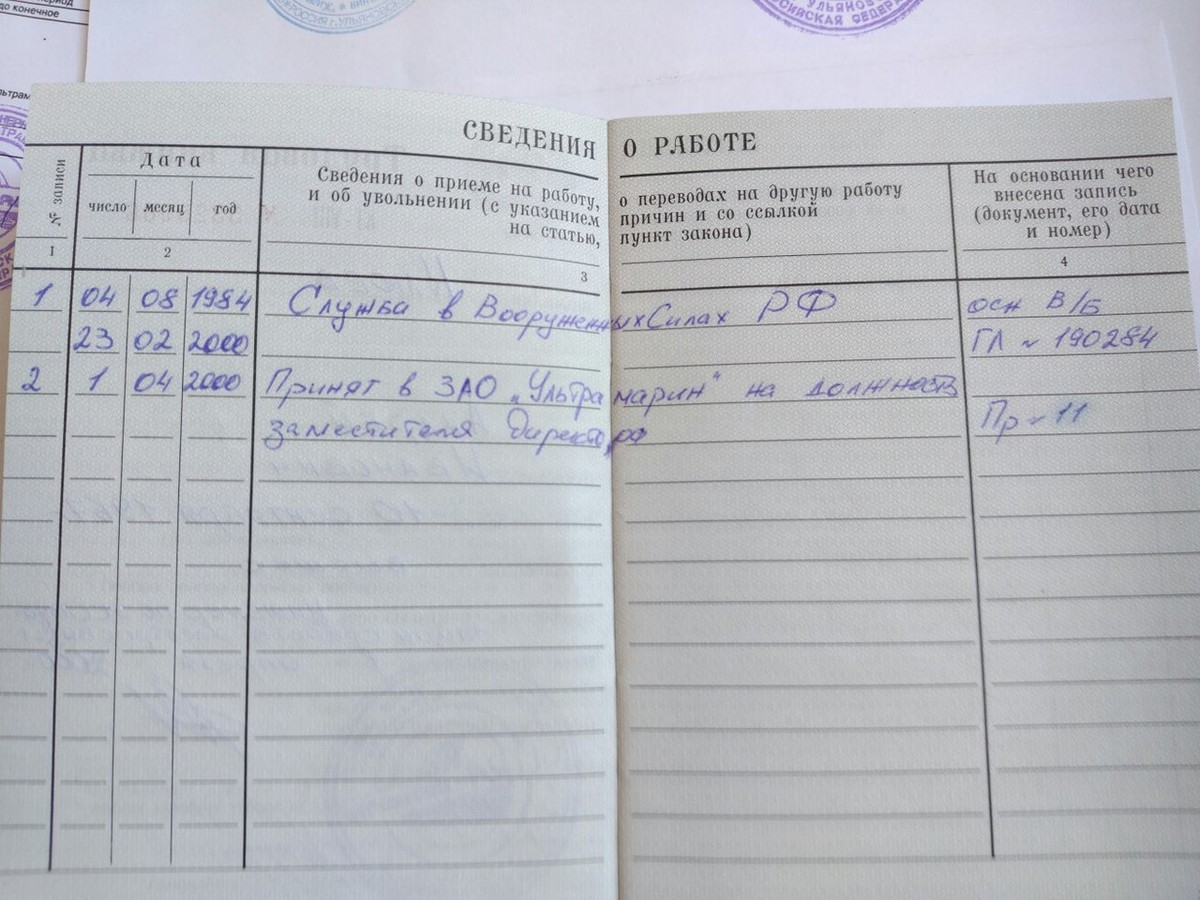 период
до конечное
РОССИЯ г.УЛЬЯНОВСК
УЛЬЯНОВ
СИЙСКАЯ ФЕДЕРА
СВЕДЕНИЯ О РАБОТЕ
№ записи
Дата
число месяц год
Сведения о приеме на работу, о переводах на другую работу
и об увольнении (с указанием причин и со ссылкой
на статью, пункт закона)
На основании чего
внесена запись
(документ, его дата
и номер)
1 2 3 4
1 04 08 1984 Служба в Вооруженных Силах РФ осн В/Б
23 02 2000 ГЛ № 190284
2 1 04 2000 Принят в ЗАО „Ультрамарин" на должность
заместителя директора Пр № 11